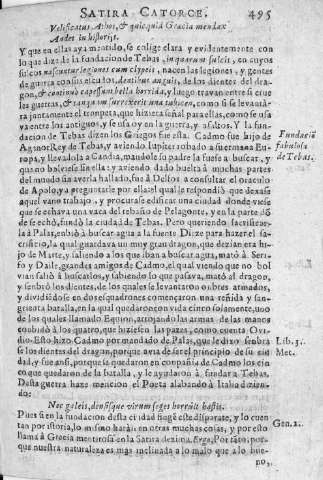 SATIRA CATORCE. 495
Velificatus Athos, & quicquid Græcia mendax
Audet in historijs.
Y que en ellas aya mentido, se colige clara y evidentemente con
lo que dize de la fundacion de Tebas, in quarum sulcis, en cuyos
sulcos nascuntur legiones cum clypeis, nacen las legiones, y gentes
de guerra con sus escudos, dentibus anguis, de los dientes del dra-
gon, & continuò capessunt bella horrida, y luego travan entre si crue
les guerras, & tanquam surrexerit una tubicen, como si se levantâ-
ra juntamente el trompeta, que hiziera señal para ellas, como se usa
va entre los antiguos, y se usa oy en la guerra, y assaltos. Y la fun-
dacion de Tebas dizen los Griegos fue esta. Cadmo fue hijo de
Agenor Rey de Tebas, y aviendo Iupiter robado a su ermana Eu-
ropa, y llevadola a Candia, mandole su padre la fuese a buscar, y
que no bolviese sin ella y aviendo dado buelta à muchas partes
del mundo sin averla hallado, fue à Delfos a consultar el oraculo
de Apolo, y a preguntarle por ella: el qual le respondiò que dexase
aquel vano trabajo, y procurase edificar una ciudad donde viese
que se echava una vaca del rebaño de Pelagonte, y en la parte dõ-
de se echò, fundò la ciudad de Tebas. Pero queriendo sacrificar-
le a Palas, enbiò a buscar agua a la fuente Dirze para hazer el sa-
crificio, la qual guardava un muy gran dragon, que dezian era hi-
jo de Marte, y saliendo a los que iban a buscar agua, matò à Seri-
fo y Daile, grandes amigos de Cadmo, el qual viendo que no bol
vian saliò à buscarlos, y sabiendo lo que pasava, matò al dragon,
y senbrò los dientes, de los quales se levantaron onbres armados,
y dividiendose en dos esquadrones comencaron una reñida y san-
grienta batalla, en la qual quedaron con vida cinco solamente, uno
de los quales llamado Equion, arrojando las armas de las manos
conbidò à los quatro, que hiziesen las pazes, como cuenta Ovi-
dio. Esto hizo Cadmo por mandado de Palas, que le dixo senbra
se los dientes del dragon, porque avia de ser el principio de su ciu
dad, y fue ansi, porque se quedaron en compañia de Cadmo los cin
co que quedaron de la batalla, y le ayudaron à fundar a Tebas.
Desta guerra haze mencion el Poeta alabando à Italia dizien-
do:
Nec galeis, densisque virum seges horruit hastis.
Pues si en la fundacion desta ciudad finge este disparate, y lo cuen
tan por istoria, lo mismo harà en otras muchas cosas, y por esto
llama à Grecia mentirosa en la Satira dezima, Ergo, Por tãto, por-
que nuestra naturaleza es mas inclinada a lo malo que a lo bue-
no,
Fundaciõ
fabulosa
de Tebas.
Lib. 3.
Met.
Gen. 2.